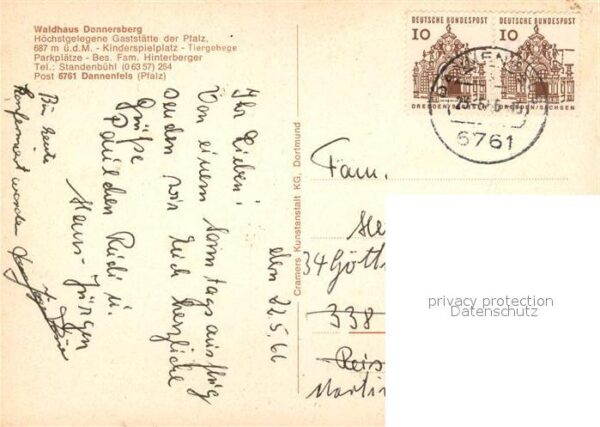 Waldhaus Donnersberg
Höchstgelegene Gaststätte der Pfalz,
687 m ü.d.M. - Kinderspielplatz - Tiergehege
Parkplätze - Bes. Fam. Hinterberger
Tel.: Standenbühl (0 63 57) 264
Post 6761 Dannenfels (Pfalz)
den 22.5.66
Ihr Lieben!
Von einem Sonntagsausflug
senden wir Euch herzliche
Grüße
Rudi u.
Hans-Jürgen
Bin heute
konfirmiert worden
Cramers Kunstanstalt KG, Dortmund
DEUTSCHE BUNDESPOST
10
DRESDEN/SACHSEN
DEUTSCHE BUNDESPOST
10
DRESDEN/SACHSEN
6761
Fam.
34 Gött
338
Reis
Martin
privacy protection
Datenschutz